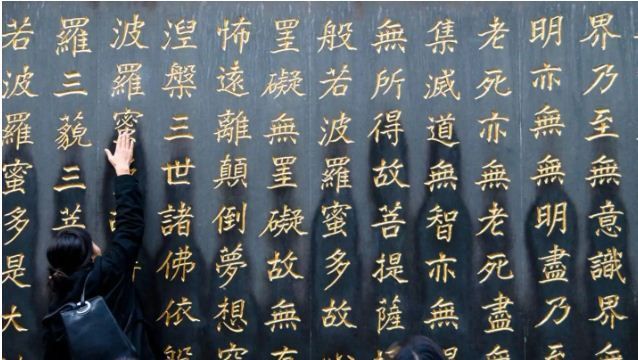 界乃至無意識界
明亦無無明盡乃
老死亦無老死盡
集滅道無智亦無
無所得故菩提薩
般若波羅蜜多故
罣礙無罣礙故無有
怖遠離顛倒夢想究
涅槃三世諸佛依般
波羅蜜
羅三藐三菩
若波羅蜜多是大